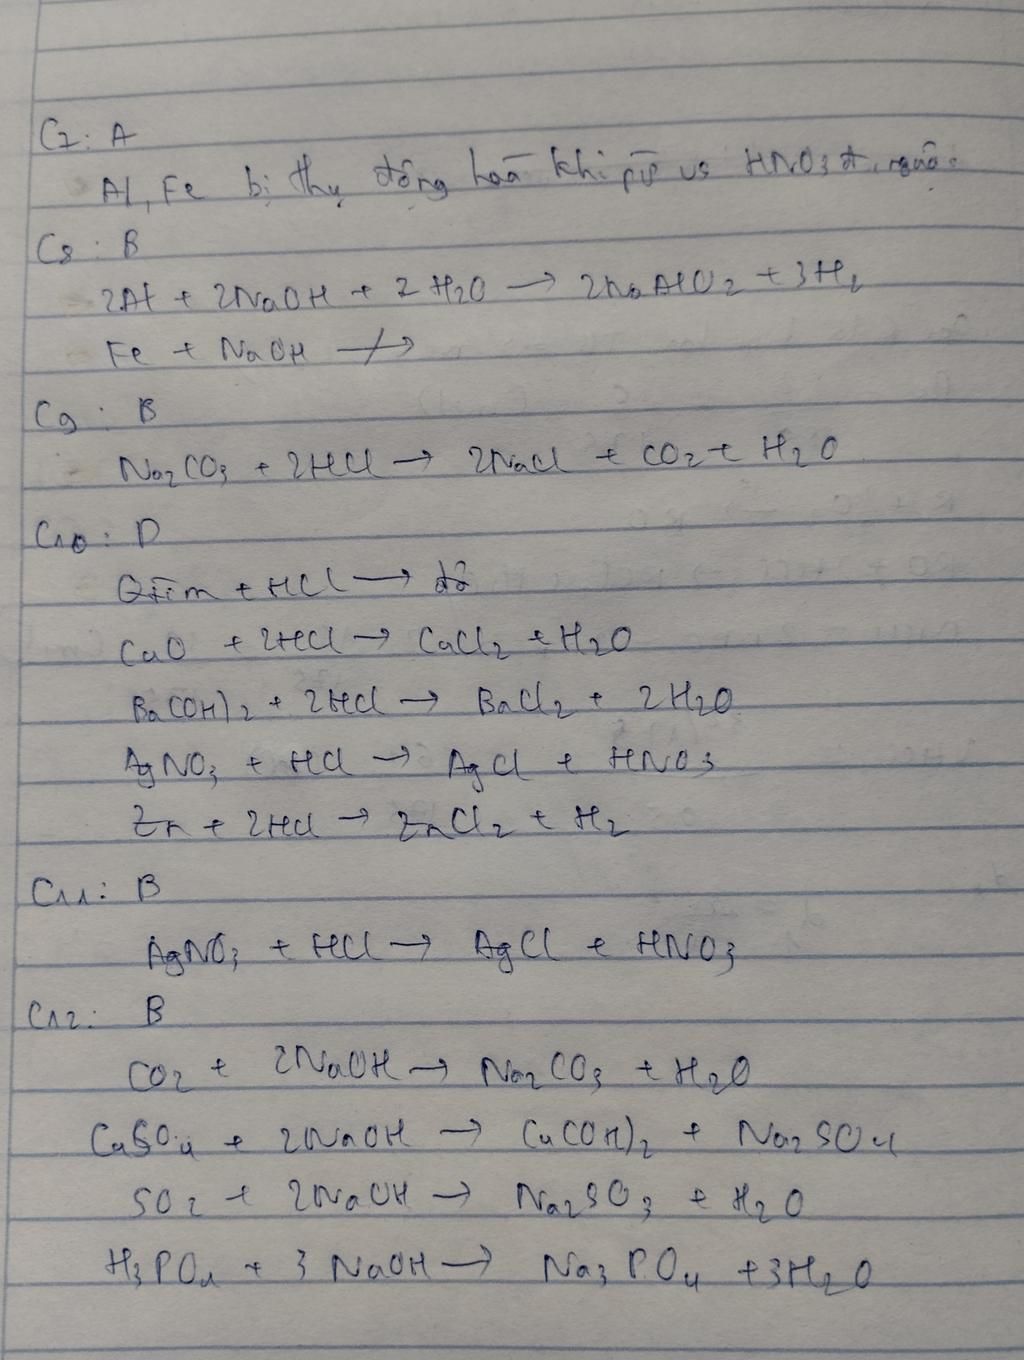 C7: A
Al, Fe bị thụ động hoá khi pứ vs HNO3 đ, nguội.
C8: B
2Al + 2NaOH + 2H2O → 2NaAlO2 + 3H2
Fe + NaOH ↛
C9: B
Na2CO3 + 2HCl → 2NaCl + CO2 + H2O
C10: D
Qtím + HCl → đỏ
CaO + 2HCl → CaCl2 + H2O
Ba(OH)2 + 2HCl → BaCl2 + 2H2O
AgNO3 + HCl → AgCl + HNO3
Zn + 2HCl → ZnCl2 + H2
C11: B
AgNO3 + HCl → AgCl + HNO3
C12: B
CO2 + 2NaOH → Na2CO3 + H2O
CuSO4 + 2NaOH → Cu(OH)2 + Na2SO4
SO2 + 2NaOH → Na2SO3 + H2O
H3PO4 + 3NaOH → Na3PO4 + 3H2O